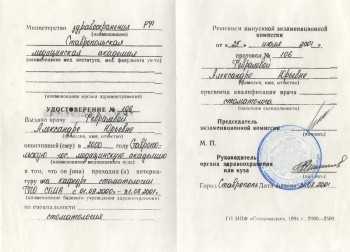 Министерство здравоохранения РФ
(наименование)
Ставропольская
медицинская академия
(наименование мед. института, мед. факультета ун-та)
(наименование органа здравоохранения)
УДОСТОВЕРЕНИЕ № 106
Выдано врачу
Александре Юрьевне
(фамилия, имя, отчество)
окончившей(ему) в 2000 году Ставропо-
льскую гос. медицинскую академию
в том, что он (она) проходил (а) интерна-
туру на кафедре стоматологии
с 01.09.2000 - 31.08.2001
(наименование базового учреждения здравоохранения)
по специальности
стоматология
Решением выпускной экзаменационной
комиссии
от « 28 » июля 2001 г.
протокол № 106
Александре Юрьевне
(фамилия, имя, отчество)
присвоена квалификация врача
стоматолога
(наименование специальности)
Председатель
экзаменационной комиссии
М. П.
Руководитель
органа здравоохранения
или вуза
Город Ставрополь Дата выдачи 2001